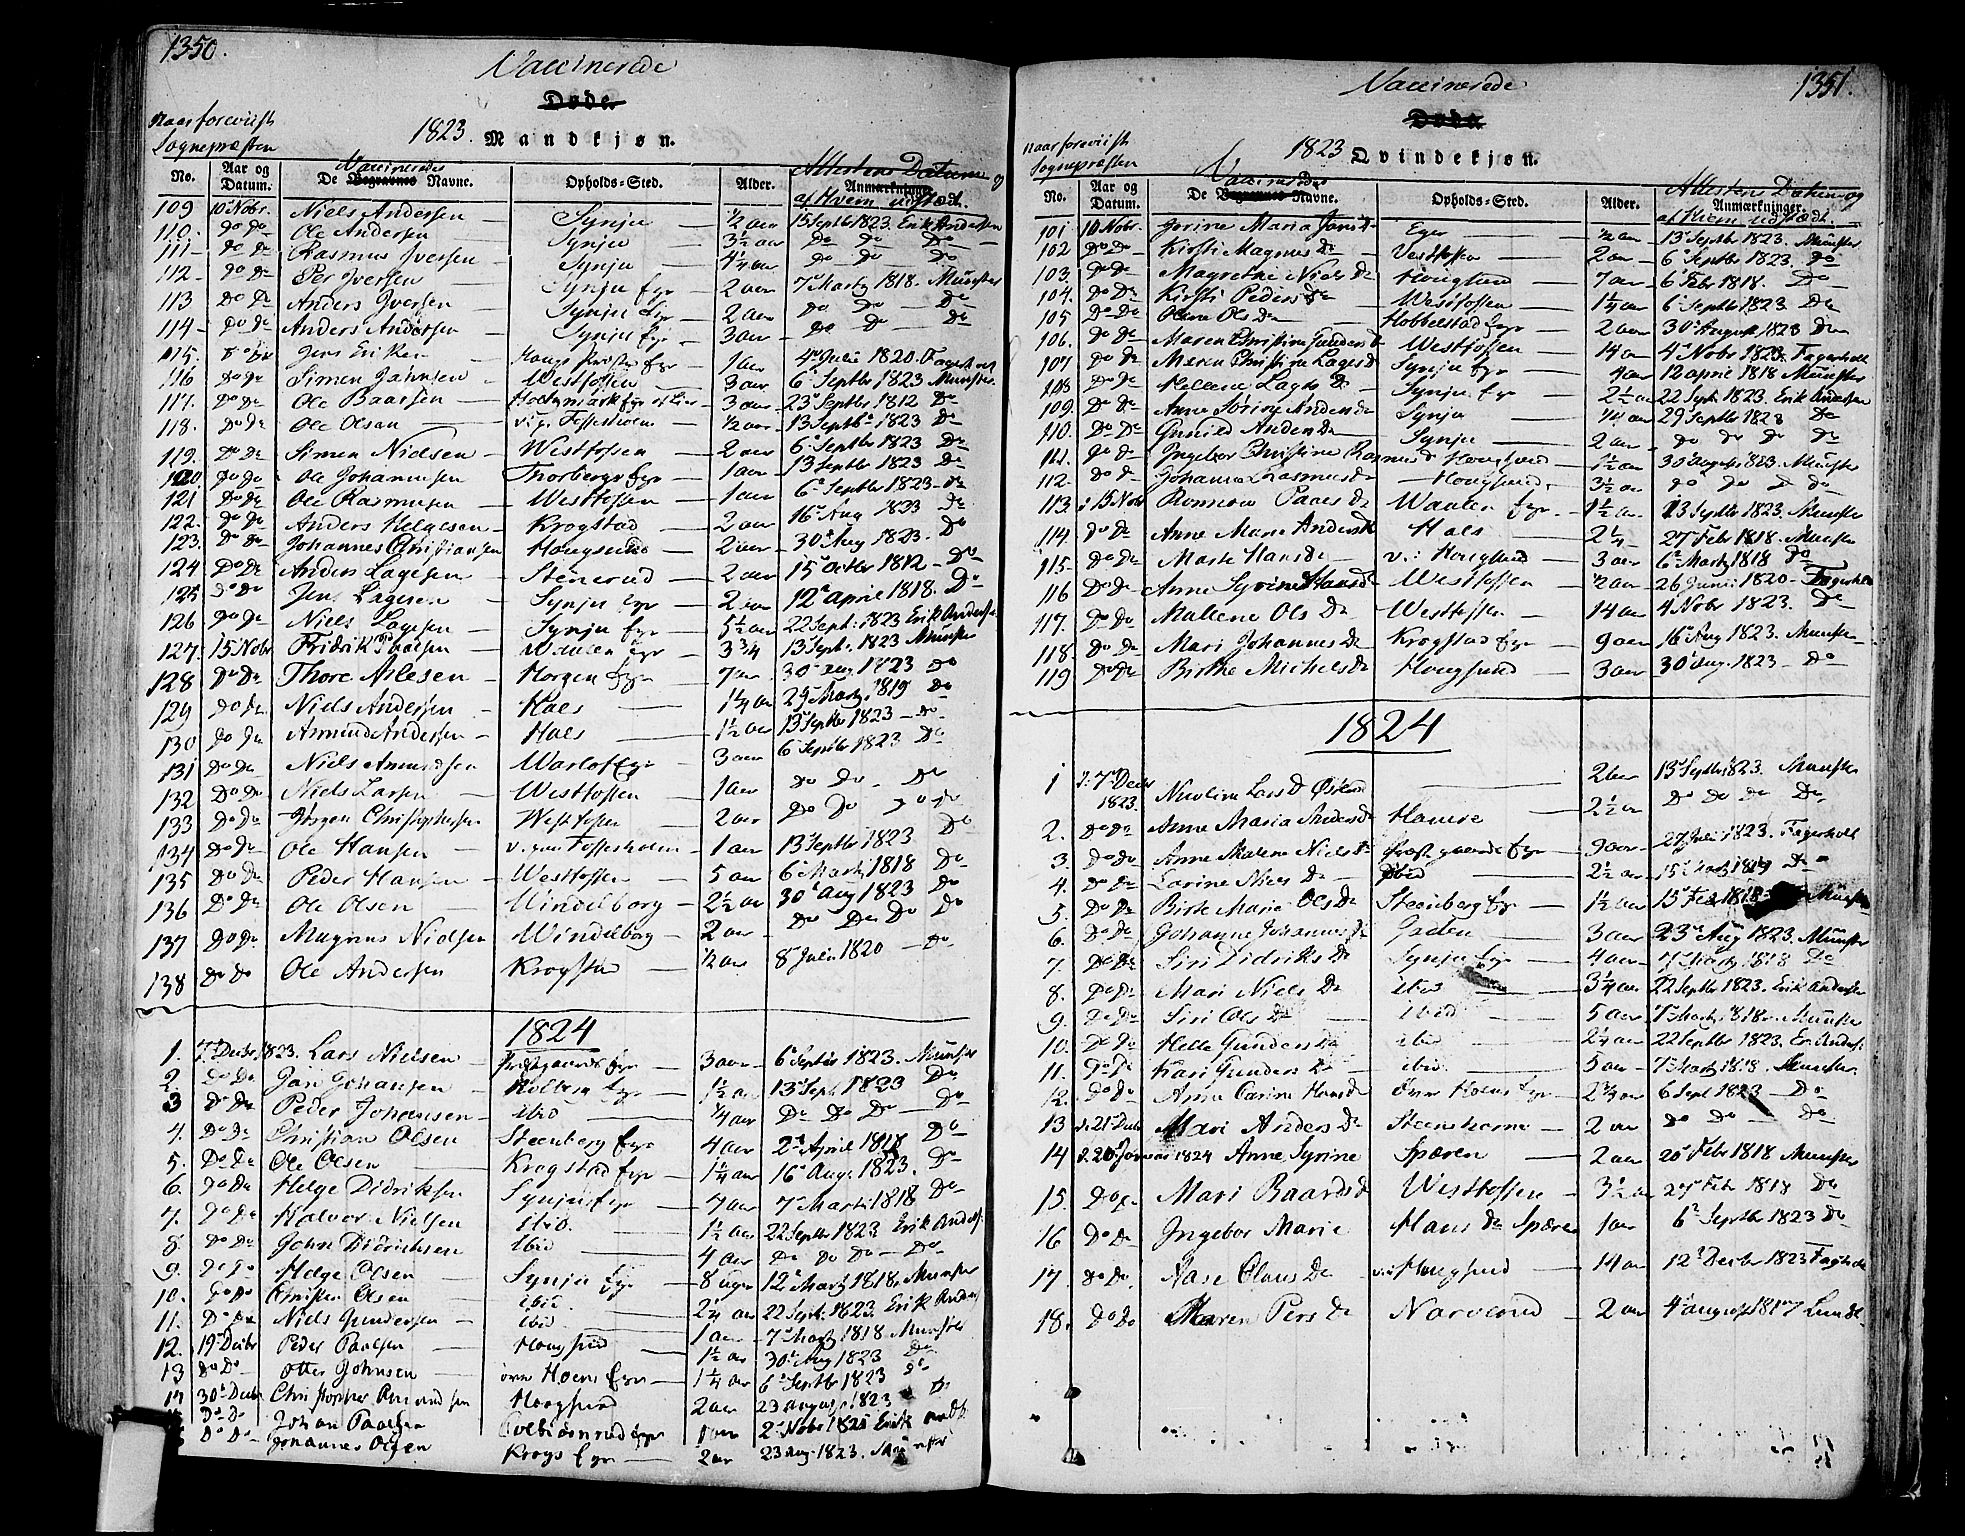 1350.
Vaccinerede
Døde.
Naar foreviist Sognepræsten
1823. Mandkjøn.
No. Aar og Datum. De Vaccineredes Begravnes Navne. Opholds-Sted. Alder. Attestens Datum og Anmærkninger. af Hvem udstædt.
109 10 Nobr. Niels Andersen — Synju — ½ aar 15 Septbr 1823. Erik Andersen
110. Do Do Ole Andersen — Synju — 3½ aar Do Do Do
111 Do Do Rasmus Iversen — Synju — 4¼ aar Do Do Do
112 Do Do Per Iversen — Synju Eyr — 2 aar 7 Martz 1818. Münster
113 Do Do Anders Iversen — Synju Eyr — 2 aar Do Do Do
114 Do Do Anders Andersen — Synju Eyr — 3 aar Do Do Do
115. Do Do Jens Eriksen — Eyr — 1 aar 4 Julii 1820.
116 Do Do Simen Jahnsen — Westfossen — 3 aar 6 Septbr 1823 Münster
117. Do Do Ole Baarsen — 3 aar 23 Septbr 1812 Do
118. Do Do Ole Olsen — Fossesholm — ½ aar 13 Septbr 1823 Do
119. Do Do Simen Nielsen — Westfossen — 2 aar 6 Septbr 1823 Do
120 Do Do Ole Johannesen — Thorberg Eyr — 1 aar 13 Septbr 1823 Do
121 Do Do Ole Rasmusen — Westfossen — 1 aar 6 Septbr 1823 Do
122. Do Do Anders Helgesen — Krogstad — 2 aar 16 Aug 1823 Do
123. Do Do Johannes Christiansen Hougsund — 2 aar 30 Aug 1823. Do
124 Do Do Anders Lagesen — Stenerud — 2 aar 15 Octbr 1812 Do
125 Do Do Jens Lagesen — Synju Eyr — 2 aar 12 April 1818. Do
126 Do Do Niels Lagesen — Synju Eyr — 5½ aar 22 Sept: 1823 Erik Anderse
127. 15 Nobr Fridrik Paalsen — Waalen Eyr — 3¾ 13 Sept. 1823 Münster
128 Do Do Thore Atlesen — Horgen Eyr — 7 aar 30 Aug 1823 Do
129 Do Do Niels Andersen — Hals — 1¼ aar 29 Martz 1819 Do
130 Do Do Amund Andersen — Hals — 1½ aar 13 Septbr 1823 Do
131 Do Do Niels Amundsen Warlof Eyr — 3 aar 6 Septbr 1823 Do
132 Do Do Niels Larsen — Westfossen — 1 aar Do Do Do
133 Do Do Jörgen Christophersen Westfossen — 2 aar Do Do Do
134 Do Do Ole Hansen — Fossesholm — 1 aar 13 Septbr 1823 Do
135 Do Do Peder Hansen — Westfossen — 5 aar 6 Martz 1818 Do
136 Do Do Ole Olsen — Windelborg — 2½ aar 30 Aug 1823 Do
137 Do Do Magnus Nielsen Windelborg — 2 aar Do Do Do Do
138 Do Do Ole Andersen Krogstad — ½ aar 8 Julii 1820 — Do
1824
1. 7 Decbr 1823. Lars Nielsen — Præstgaards Eyr — 3 aar 6 Septbr 1823. Münster
2 Do Do Jan Johansen — Eyr — 1½ aar 13 Sept 1823 Do
3 Do Do Peder Johansen — ibid — ¼ aar Do Do Do Do
4. Do Do Christian Olsen Steenberg Eyr — 4 aar 2 April 1818 Do
5. Do Do Ole Olsen — Krogstad Eyr — 1¼ aar 16 Aug. 1823. Do
6. Do Do Helge Didriksen Synju Eyr — 7 aar 7 Martz 1818 Do
7. Do Do Halvor Nielsen ibid. — 1½ aar 22 Septbr 1823 Erik Anders.
8. Do Do John Didrichsen ibid — 4 aar Do Do Do Do
9. Do Do Helge Olsen — Synju Eyr — 8 uger 12 Martz 1818. Münster
10. Do Do Christen Olsen — ibid. — 2¼ aar 22 Sept. 1823 Erik Anders
11. Do Do Niels Gundersen — ibid. — 1 aar 7 Martz 1818 Münster
12. 19 Decbr Peder Paalsen Hougsund — 1½ aar 30 Aug 1823 Do
13 Do Do Otter Johnsen — övre Hoens Eyr — 1¼ aar 6 Septbr 1823 Do
14 30 Decbr Christopher Amundsen Hougsund — 2 aar 23 August 1823 Do
Do Do Johan Paalsen Eyr — 1 aar 2 Nobr Erik Andr.
Do Do Johannes Olsen Krogs Eyr — 2 aar 23 Aug. 1823. Münster
1351.
Vaccinerede
Døde
Naar foreviist Sognepræsten
1823 Qvindekjøn.
No. Aar og Datum. De Vaccineredes Begravnes Navne. Opholds-Sted. Alder. Attestens Datum og Anmærkninger. af Hvem udstædt.
101 10 Nobr. Gorine Maria Jans D. Eger — ½ aar 13 Septbr 1823. Münster
102 Do Do Kirsti Magnus D Vestfossen — 2 aar 6 Septbr 1823. Do
103. Do Do Magrethe Niels D Hougsund — 7 aar 6 Febr 1818. Do
104. Do Do Kirsti Peders D Westfossen — 1¼ aar 6 Septbr 1823 Do
105 Do Do Olene Ols D — Hobbelstad Eyr — 2 aar 30 August 1823 Do
106. Do Do Maren Christina Gunders D Westfossen — 14 aar 4 Nobr 1823. Fagerholt
107 Do Do Maren Christina Lages D Synju Eyr — 4 aar 12 April 1818 Münster
108 Do Do Hellene Lages D — Synju Eyr — 2½ aar 22 Sept. 1823. Erik Andersen
109. Do Do Anne Sörine Anders D Synju — ¼ aar 29 Septbr 1823 Do
110. Do Do Gunild Anders D — Synju — 2 aar Do Do Do Do
111. Do Do Ingebor Christine Rasmus D Hougsund — 1½ aar 30 August 1823. Münster
112. Do Do Johanna Rasmus D — Hougsund — 3½ aar Do Do Do Do
113 15 Nobr Paaes D Waalen Eyr. — 1½ aar 13 Septbr 1823. Münster
114. Do Do Anne Marie Anders D Hals — 2¼ 27 Febr 1818. Münster
115. Do Do Marte Hans D — v.: Hougsund — 3 aar 6 Martz 1818 Do
116 Do Do Anne Syrine Hans D Westfossen — ½ aar 26 Junii 1820 Fagerholt
117. Do Do Mallene Ols D Westfossen — 14 aar 4 Nobr 1823. Do
118. Do Do Mari Johannes D Krogstad Eyr — 9 aar 16 Aug 1823. Münster
119 Do Do Birthe Michels D Hougsund — 3 aar 30 Aug. 1823 — Do
1824
1 d: 7 Decbr 1823. Nicoline Lars D — 2 aar 13 Septbr 1823. Münster
2. Do Do Anne Maria Anders D — 2½ aar Do Do Do Do
3 Do Do Anne Malene Niels D Præstgaards Eyr — 9 aar 27 Julii 1823. Fagerholt
4. Do Do Larine Niels D — ibid — 2½ aar 15 Martz 1819 Do
5. Do Do Birte Marie Ols D Steenberg Eyr — 1½ aar 15 Febr 1818 Münster
6. Do Do Johanne Johannes D — 3 aar 23 Aug 1823. Münster
7. Do Do Siri Didriks D Synju Eyr — 4 aar 7 Martz 1818 Do
8. Do Do Mari Niels D ibid — 3¼ aar 22 Septbr 1823. Erik Andersen
9. Do Do Siri Ols D — ibid — 5 aar 7 Martz 1818. Münster
10. Do Do Helle Gunders D ibid — 2¼ aar 22 Septbr 1823. Er. Anders.
11. Do Do Kari Gunders D — ibid. — 5 aar 7 Martz 1818. Münster.
12. Do Do Anne Carine Hans D övre Hoens Eyr — 2¾ aar 6 Sept 1823 — Do
13 d. 21 Decbr Mari Anders D Steensholm — 2 aar Do Do Do
14 d. 20 Januar 1824 Anne Syrine Spæren — 2 aar 20 Febr 1818 Münster
15. Do Do Mari Baards D Westfossen — 3½ aar 27 Febr 1818 Do
16 Do Do Ingebor Marie Hans D Spæren 1 aar 6 Septbr 1823 Do
17. Do Do Aase Claus D v.: Hougsund — 14 aar 12 Decbr 1823 Fagholt
18. Do Do Maren Pers D Narverud — 2 aar 4 August 1817 Lund